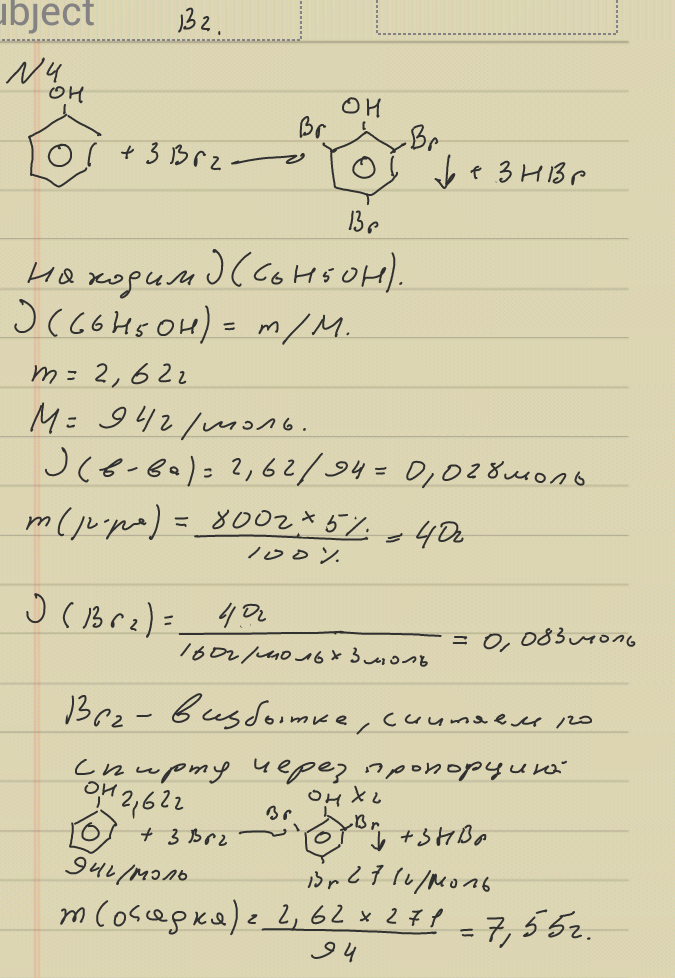 ubject
Вг.
N4
OH
+ 3Br2 ⟶ OH Br Br Br ↓ + 3HBr
Находим ν(C6H5OH).
ν(C6H5OH) = m/M.
m = 2,62г
M = 94г/моль.
ν(в-ва) = 2,62/94 = 0,028моль
m(р-ра) = 800г × 5% / 100% = 40г
ν(Br2) = 40г / 160г/моль × 3моль = 0,083моль
Br2 – в избытке, считаем по
спирту через пропорцию
OH 2,62г + 3Br2 ⟶ OH Xг Br Br Br ↓ + 3HBr
94г/моль 271г/моль
m(осадка) = 2,62 × 271 / 94 = 7,55г.